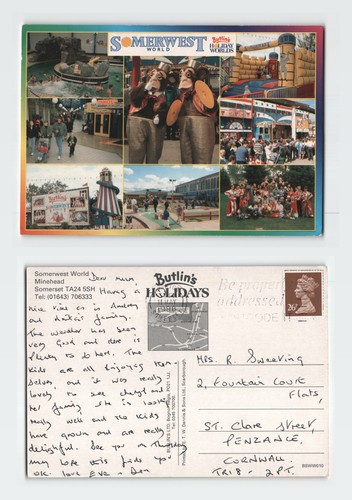 SOMERWEST
WORLD
Butlin's
HOLIDAY
WORLDS
Somerwest World
Minehead
Somerset TA24 5SH
Tel: (01643) 706333
Butlin's
HOLIDAYS
Be proper
addressed
POSTCODE
26
Dear mum,
Having a
nice time
and family.
The weather has been
very good and there is
plenty to do here. The
kids are all enjoying them
selves and it was really
lovely to see
her family she is looking
really well and the kids
have grown and are really
delightful. See you on Thursday
may hope this finds you
ok. love
MRS. R. Sweeting
2, Fountain Court
Flats,
ST. Clare Street
PENZANCE,
CORNWALL.
TR18 - 2PT.